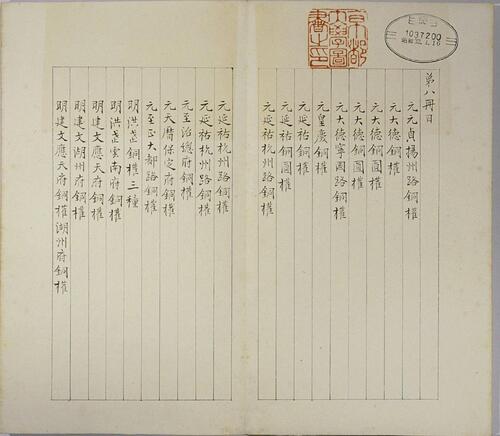 京都
大學圖
書之印
1037200
第八冊目
元元貞揚州路銅權
元大德銅權
元大德銅圓權
元大德銅圓權
元大德寧國路銅權
元皇慶銅權
元延祐銅權
元延祐銅圓權
元延祐杭州路銅權
元延祐杭州路銅權
元延祐杭州路銅權
元至治總府銅權
元天曆保定府銅權
元至正大都路銅權
明洪武銅權三種
明洪武雲南府銅權
明建文應天府銅權
明建文湖州府銅權
明建文應天府銅權 湖州府銅權